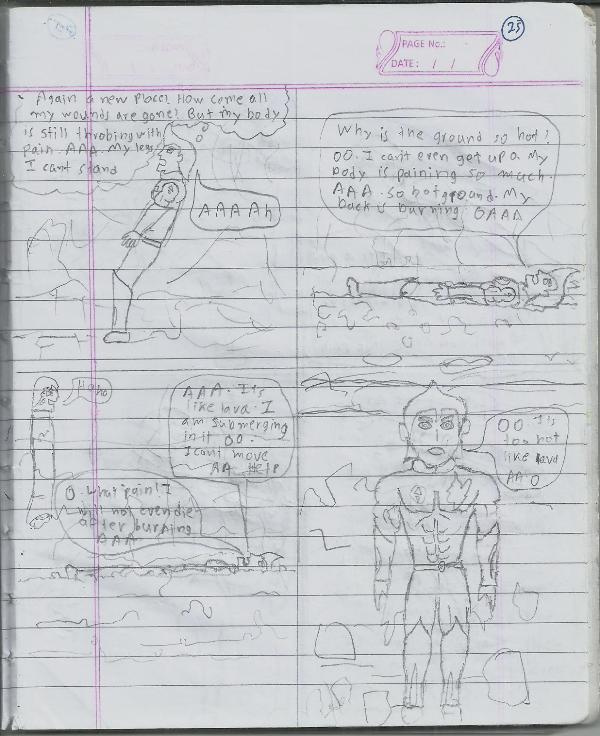 25
PAGE No.:
DATE: / /
Again a new place? How come all
my wounds are gone? But my body
is still throbing with
pain. AAA. My legs
I cant stand
AAAAh
Why is the ground so hot?
OO. I can't even get up. My
body is paining so much.
AAA. So hot ground. My
back is burning. OAAA
Haha
AAA. It's
like lava. I
am submerging
in it OO.
I cant move
AA Help
O. What pain! I
will not even die
after burning
AAA
OO. It's
too hot
like lava
AA O